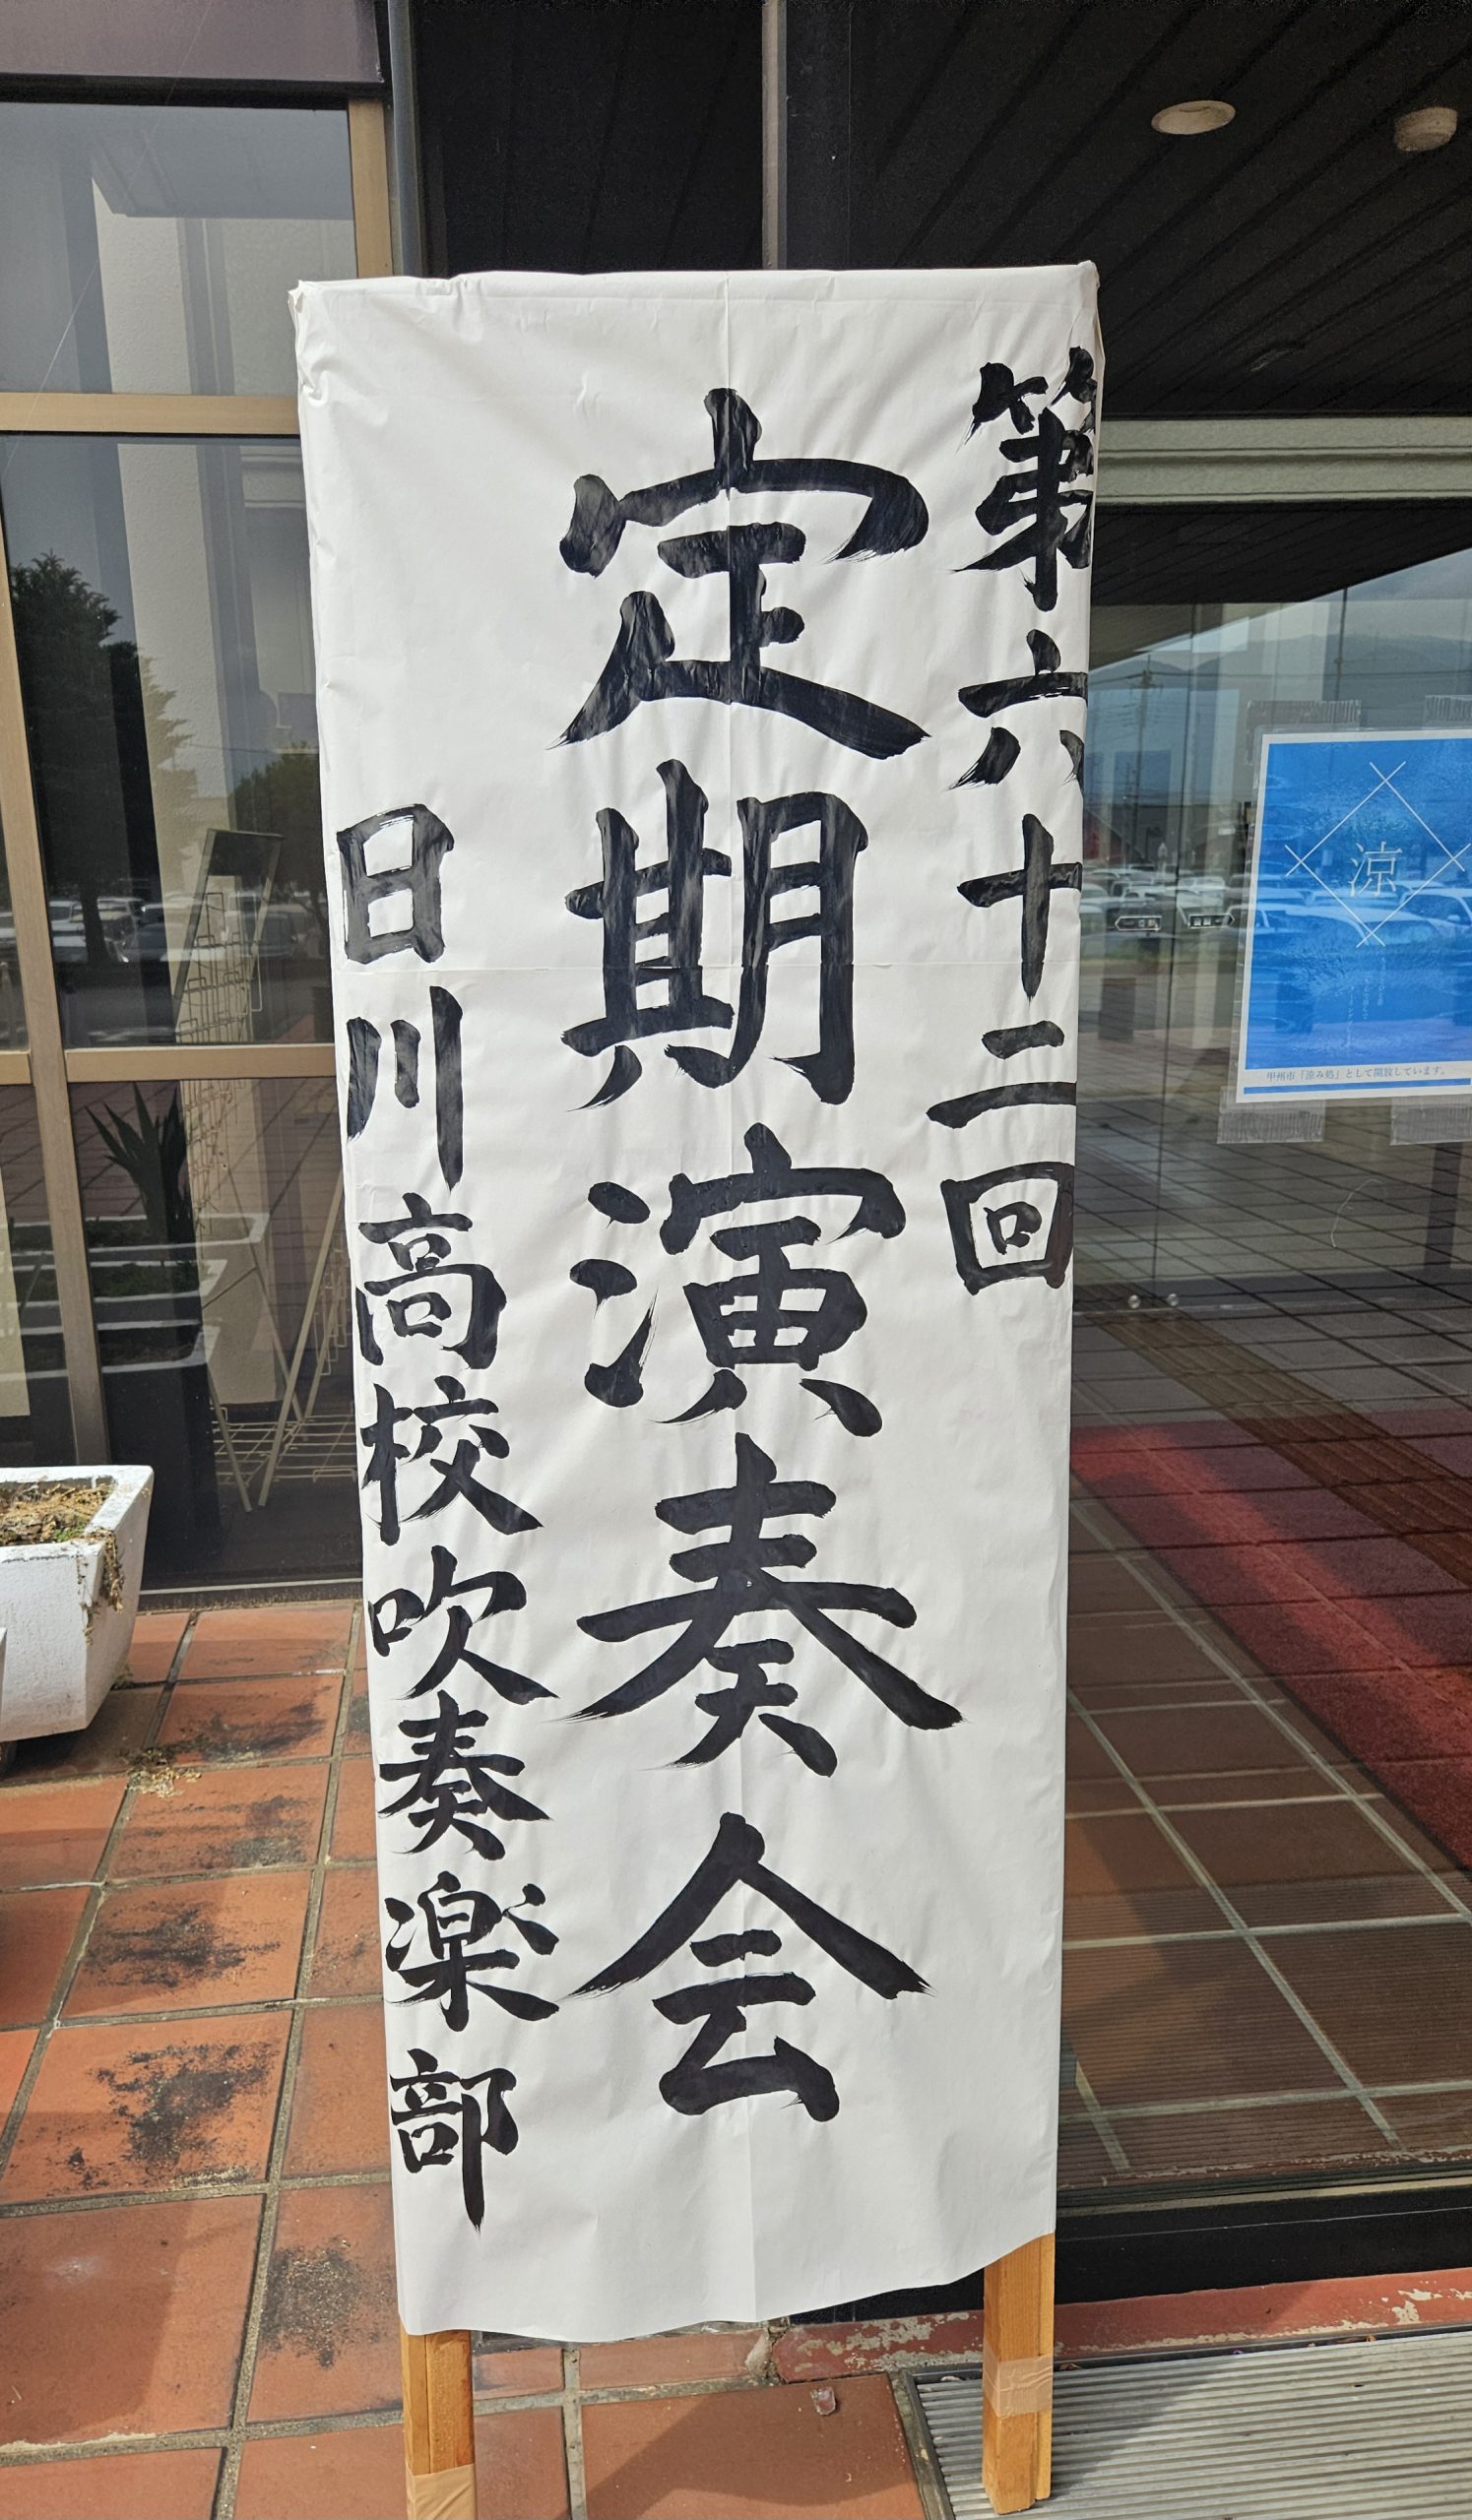 第六十二回
定期演奏会
日川高校吹奏楽部
涼
甲州市「涼み処」として開放しています。